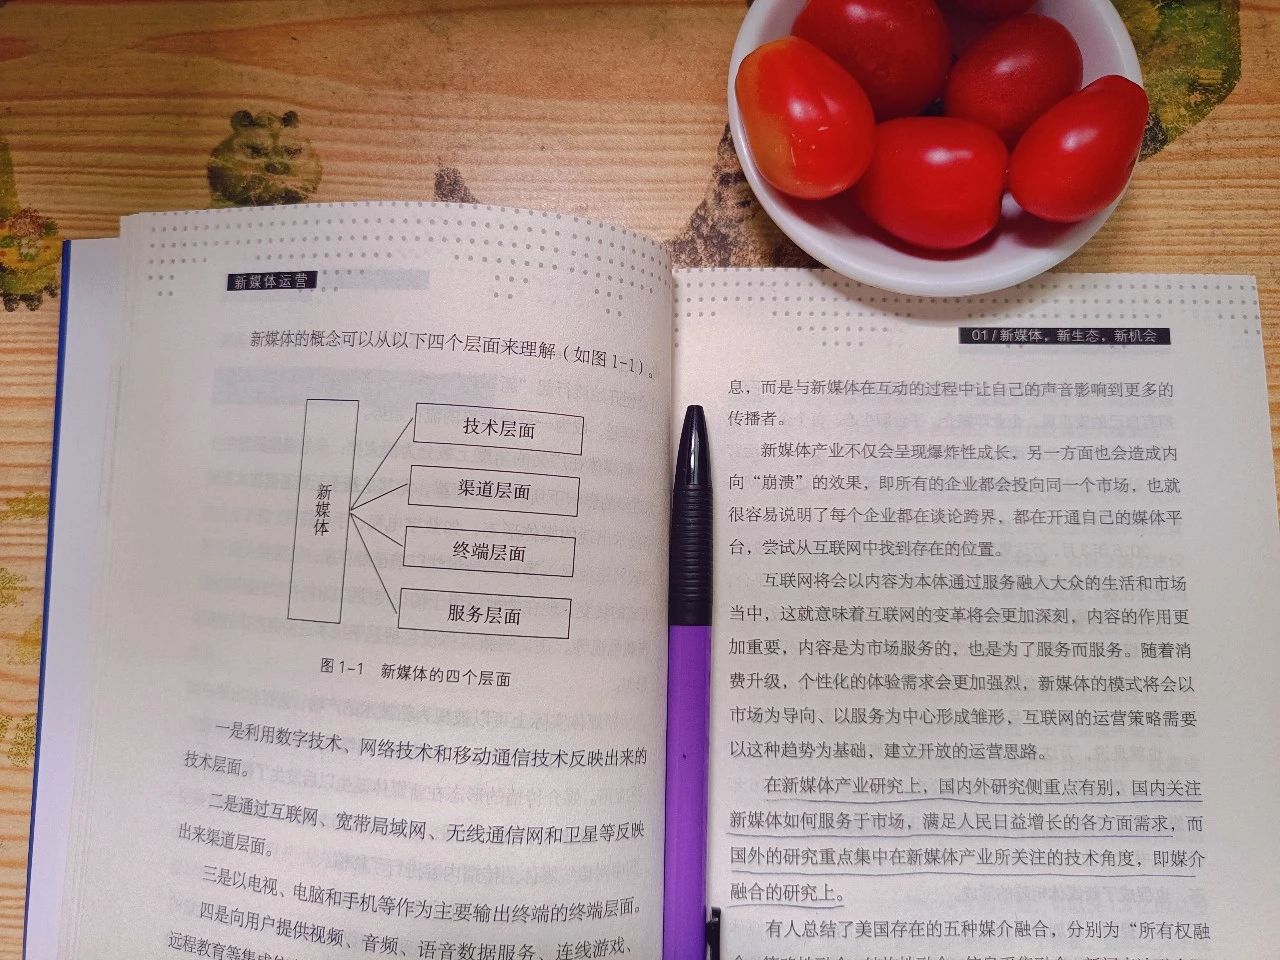 新媒体运营
新媒体的概念可以从以下四个层面来理解（如图1-1）。
新媒体
技术层面
渠道层面
终端层面
服务层面
图1-1 新媒体的四个层面
一是利用数字技术、网络技术和移动通信技术反映出来的
技术层面。
二是通过互联网、宽带局域网、无线通信网和卫星等反映
出来渠道层面。
三是以电视、电脑和手机等作为主要输出终端的终端层面。
四是向用户提供视频、音频、语音数据服务、连线游戏、
远程教育等集成
01/新媒体，新生态，新机会
息，而是与新媒体在互动的过程中让自己的声音影响到更多的
传播者。
新媒体产业不仅会呈现爆炸性成长，另一方面也会造成内
向“崩溃”的效果，即所有的企业都会投向同一个市场，也就
很容易说明了每个企业都在谈论跨界，都在开通自己的媒体平
台，尝试从互联网中找到存在的位置。
互联网将会以内容为本体通过服务融入大众的生活和市场
当中，这就意味着互联网的变革将会更加深刻，内容的作用更
加重要，内容是为市场服务的，也是为了服务而服务。随着消
费升级，个性化的体验需求会更加强烈，新媒体的模式将会以
市场为导向、以服务为中心形成雏形，互联网的运营策略需要
以这种趋势为基础，建立开放的运营思路。
在新媒体产业研究上，国内外研究侧重点有别，国内关注
新媒体如何服务于市场，满足人民日益增长的各方面需求，而
国外的研究重点集中在新媒体产业所关注的技术角度，即媒介
融合的研究上。
有人总结了美国存在的五种媒介融合，分别为“所有权融